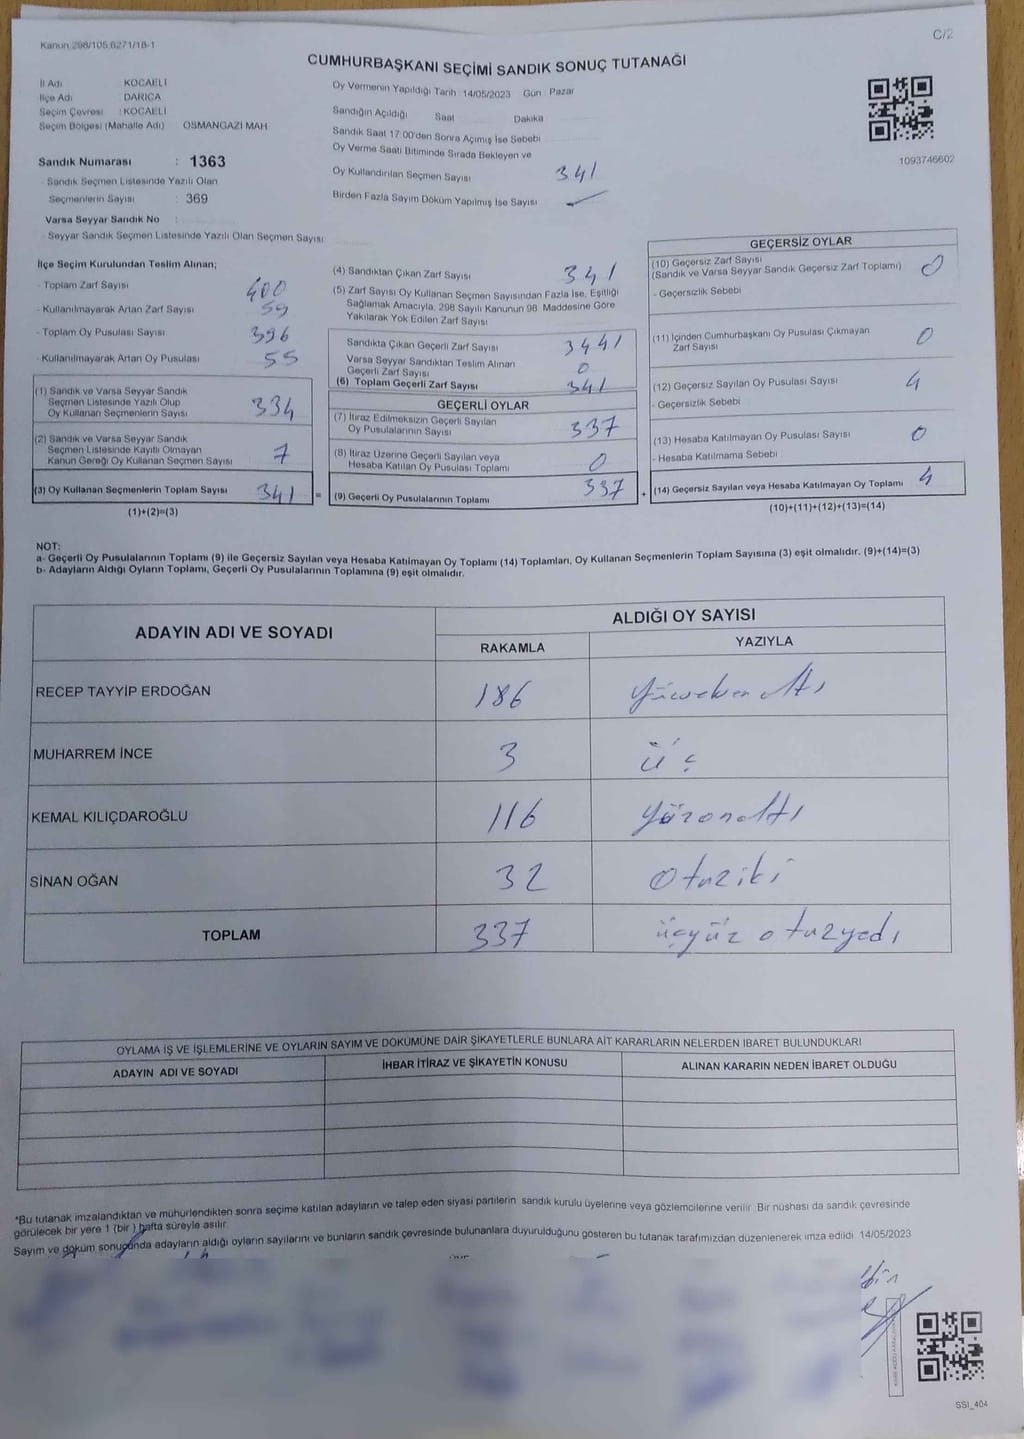 Kanun 298/105,6271/18-1
C/2
CUMHURBAŞKANI SEÇİMİ SANDIK SONUÇ TUTANAĞI
İl Adı KOCAELİ
İlçe Adı DARICA
Seçim Çevresi : KOCAELİ
Seçim Bölgesi (Mahalle Adı) OSMANGAZİ MAH.
Sandık Numarası : 1363
- Sandık Seçmen Listesinde Yazılı Olan
Seçmenlerin Sayısı : 369
Varsa Seyyar Sandık No :
- Seyyar Sandık Seçmen Listesinde Yazılı Olan Seçmen Sayısı:
Oy Vermenin Yapıldığı Tarih : 14/05/2023 Gün : Pazar
Sandığın Açıldığı Saat Dakika
Sandık Saat 17:00'den Sonra Açılmış İse Sebebi
Oy Verme Saati Bitiminde Sırada Bekleyen ve
Oy Kullandırılan Seçmen Sayısı 341
Birden Fazla Sayım Döküm Yapılmış İse Sayısı
1093746602
İlçe Seçim Kurulundan Teslim Alınan;
- Toplam Zarf Sayısı 400
- Kullanılmayarak Artan Zarf Sayısı 59
- Toplam Oy Pusulası Sayısı 396
- Kullanılmayarak Artan Oy Pusulası 55
(1) Sandık ve Varsa Seyyar Sandık
Seçmen Listesinde Yazılı Olup
Oy Kullanan Seçmenlerin Sayısı 334
(2) Sandık ve Varsa Seyyar Sandık
Seçmen Listesinde Kayıtlı Olmayan
Kanun Gereği Oy Kullanan Seçmen Sayısı 7
(3) Oy Kullanan Seçmenlerin Toplam Sayısı 341 =
(1)+(2)=(3)
(4) Sandıktan Çıkan Zarf Sayısı 341
(5) Zarf Sayısı Oy Kullanan Seçmen Sayısından Fazla İse, Eşitliği
Sağlamak Amacıyla, 298 Sayılı Kanunun 98. Maddesine Göre
Yakılarak Yok Edilen Zarf Sayısı
Sandıkta Çıkan Geçerli Zarf Sayısı 3441
Varsa Seyyar Sandıktan Teslim Alınan
Geçerli Zarf Sayısı 0
(6) Toplam Geçerli Zarf Sayısı 341
GEÇERLİ OYLAR
(7) İtiraz Edilmeksizin Geçerli Sayılan
Oy Pusulalarının Sayısı 337
(8) İtiraz Üzerine Geçerli Sayılan veya
Hesaba Katılan Oy Pusulası Toplamı 0
(9) Geçerli Oy Pusulalarının Toplamı 337 +
GEÇERSİZ OYLAR
(10) Geçersiz Zarf Sayısı
(Sandık ve Varsa Seyyar Sandık Geçersiz Zarf Toplamı) 0
- Geçersizlik Sebebi
(11) İçinden Cumhurbaşkanı Oy Pusulası Çıkmayan
Zarf Sayısı 0
(12) Geçersiz Sayılan Oy Pusulası Sayısı 4
- Geçersizlik Sebebi
(13) Hesaba Katılmayan Oy Pusulası Sayısı 0
- Hesaba Katılmama Sebebi
(14) Geçersiz Sayılan veya Hesaba Katılmayan Oy Toplamı 4
(10)+(11)+(12)+(13)=(14)
NOT:
a- Geçerli Oy Pusulalarının Toplamı (9) ile Geçersiz Sayılan veya Hesaba Katılmayan Oy Toplamı (14) Toplamları, Oy Kullanan Seçmenlerin Toplam Sayısına (3) eşit olmalıdır. (9)+(14)=(3)
b- Adayların Aldığı Oyların Toplamı, Geçerli Oy Pusulalarının Toplamına (9) eşit olmalıdır.
ADAYIN ADI VE SOYADI
ALDIĞI OY SAYISI
RAKAMLA YAZIYLA
RECEP TAYYİP ERDOĞAN 186
MUHARREM İNCE 3 üç
KEMAL KILIÇDAROĞLU 116 yüzonaltı
SİNAN OĞAN 32 otuziki
TOPLAM 337 üçyüz otuzyedi
OYLAMA İŞ VE İŞLEMLERİNE VE OYLARIN SAYIM VE DÖKÜMÜNE DAİR ŞİKAYETLERLE BUNLARA AİT KARARLARIN NELERDEN İBARET BULUNDUKLARI
ADAYIN ADI VE SOYADI İHBAR İTİRAZ VE ŞİKAYETİN KONUSU ALINAN KARARIN NEDEN İBARET OLDUĞU
*Bu tutanak imzalandıktan ve mühürlendikten sonra seçime katılan adayların ve talep eden siyasi partilerin sandık kurulu üyelerine veya gözlemcilerine verilir. Bir nüshası da sandık çevresinde
görülecek bir yere 1 (bir ) hafta süreyle asılır.
Sayım ve döküm sonucunda adayların aldığı oyların sayılarını ve bunların sandık çevresinde bulunanlara duyurulduğunu gösteren bu tutanak tarafımızdan düzenlenerek imza edildi. 14/05/2023
SSI_404